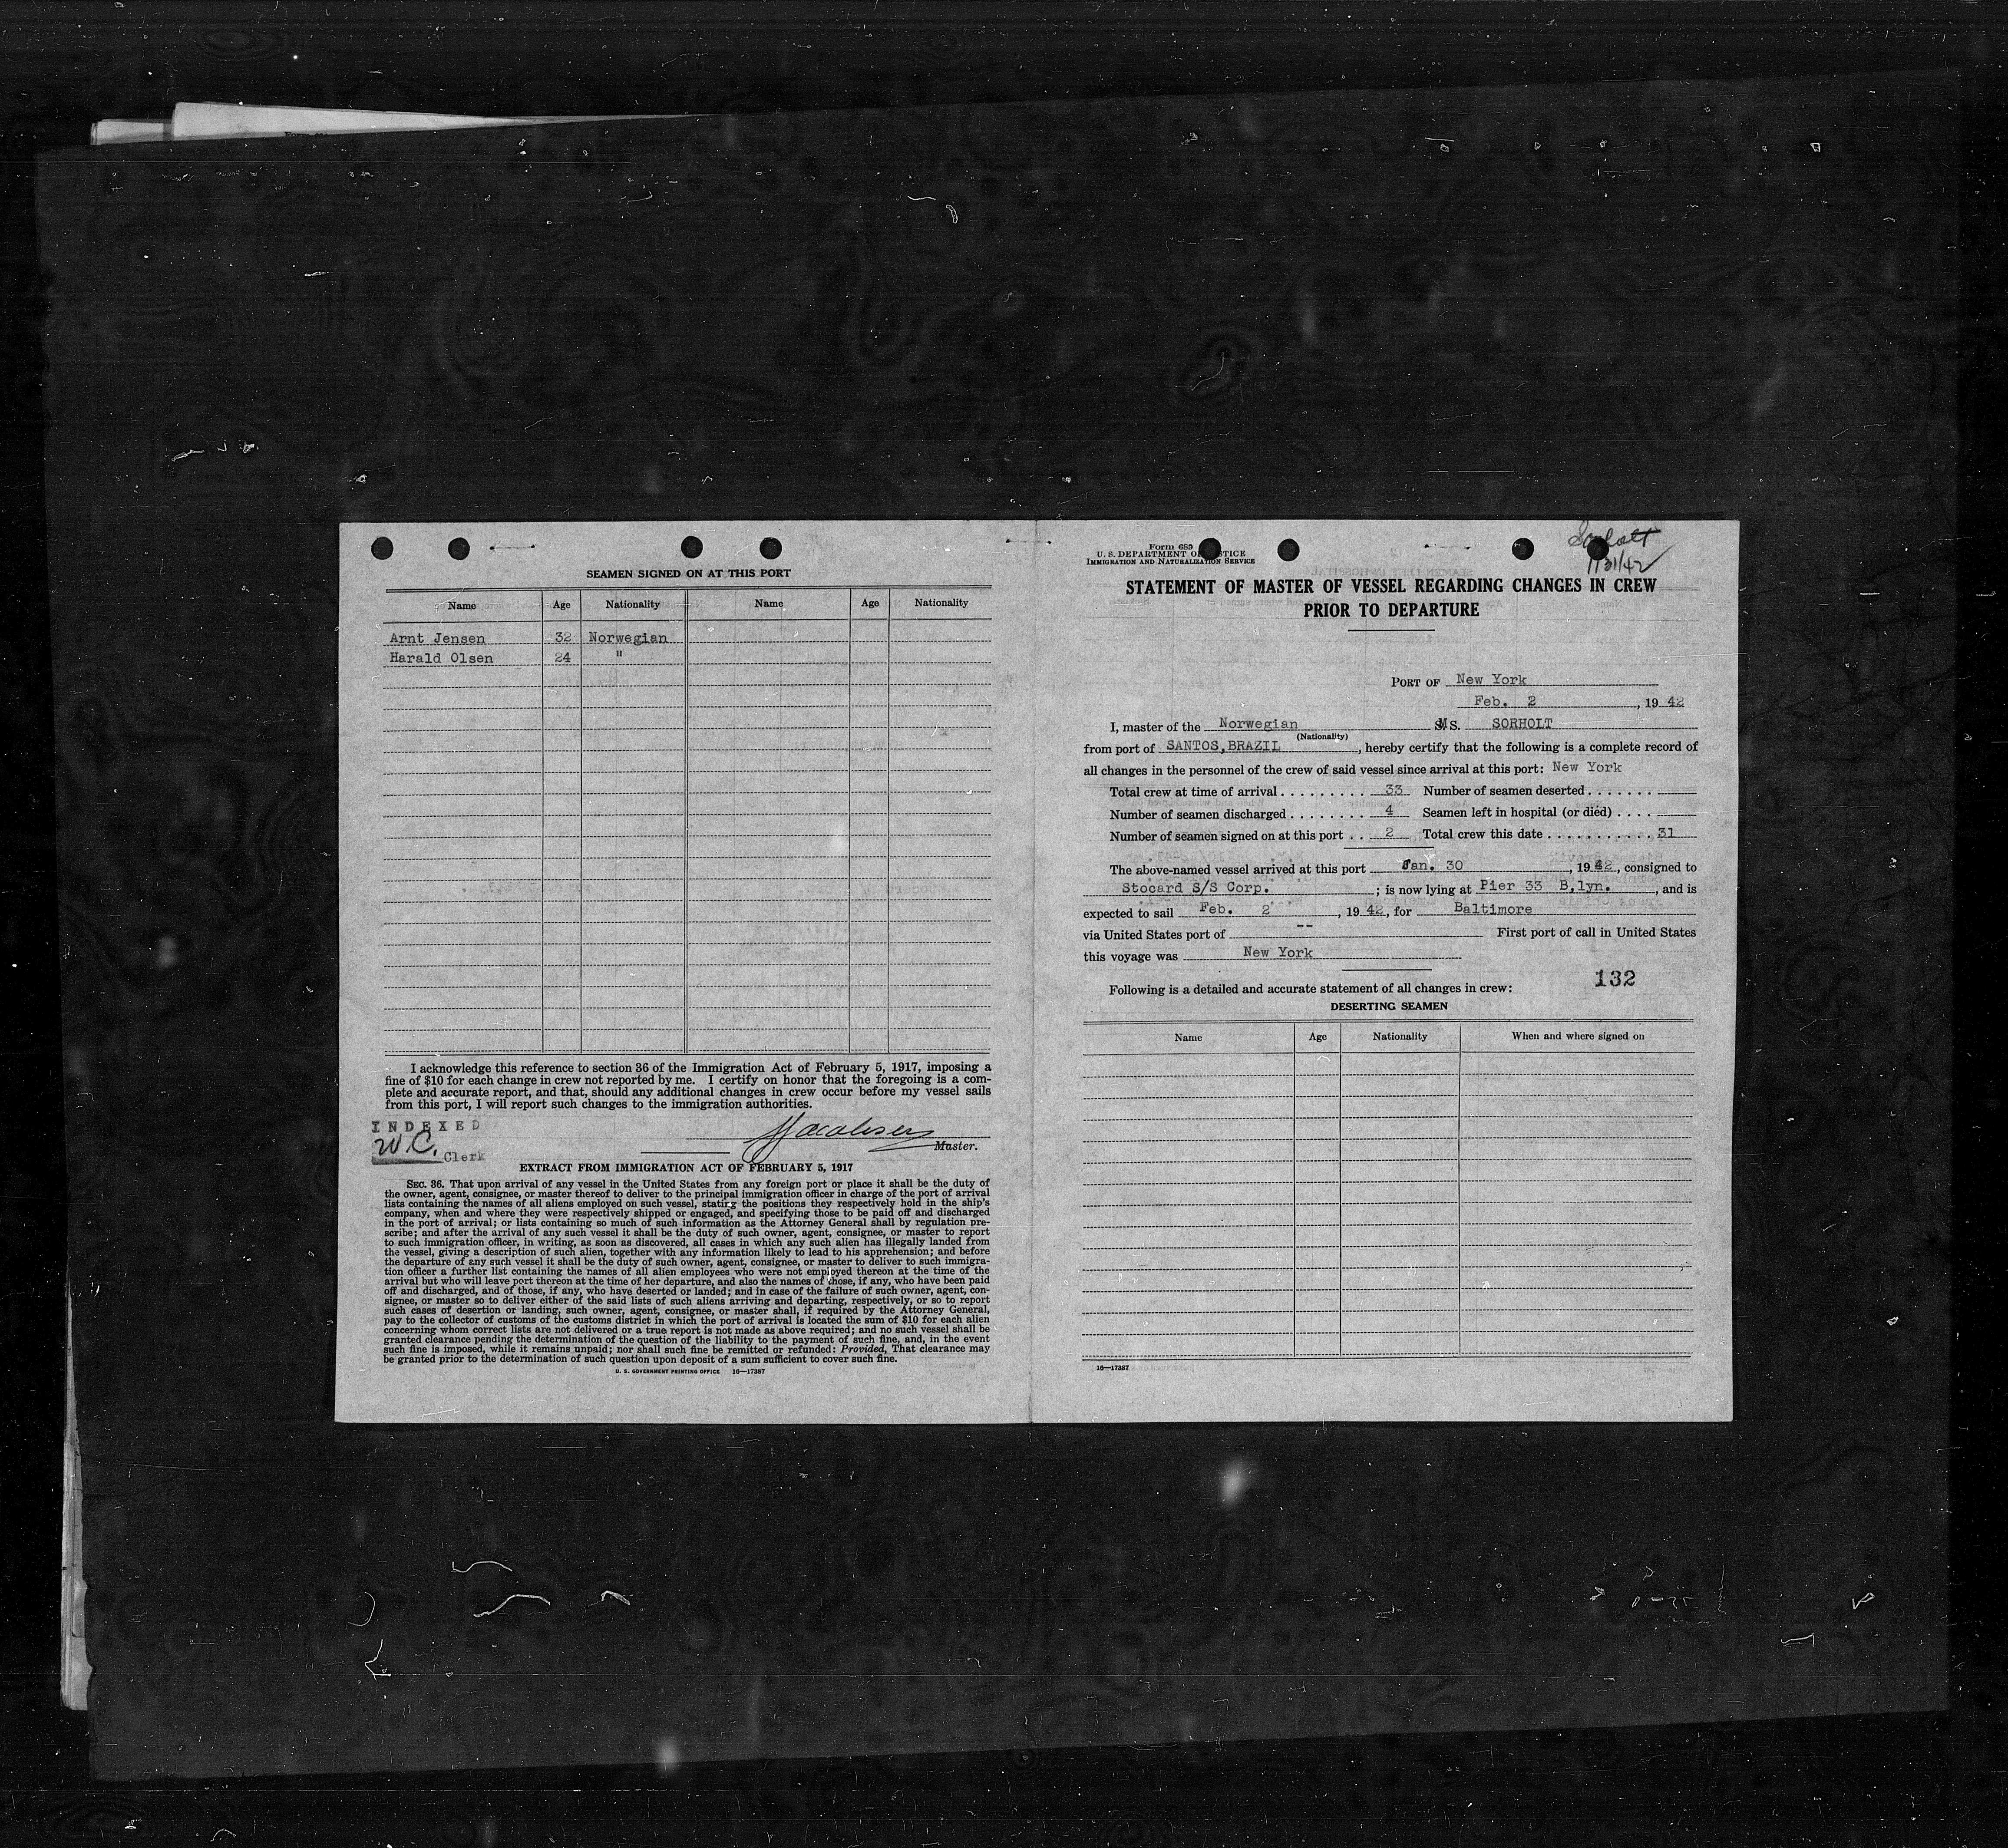 SEAMEN SIGNED ON AT THIS PORT
Name Age Nationality Name Age Nationality
Arnt Jensen 32 Norwegian
Harald Olsen 24 "
I acknowledge this reference to section 36 of the Immigration Act of February 5, 1917, imposing a
fine of $10 for each change in crew not reported by me. I certify on honor that the foregoing is a com-
plete and accurate report, and that, should any additional changes in crew occur before my vessel sails
from this port, I will report such changes to the immigration authorities.
INDEXED
W.C. Clerk
Master.
EXTRACT FROM IMMIGRATION ACT OF FEBRUARY 5, 1917
SEC. 36. That upon arrival of any vessel in the United States from any foreign port or place it shall be the duty of
the owner, agent, consignee, or master thereof to deliver to the principal immigration officer in charge of the port of arrival
lists containing the names of all aliens employed on such vessel, stating the positions they respectively hold in the ship's
company, when and where they were respectively shipped or engaged, and specifying those to be paid off and discharged
in the port of arrival; or lists containing so much of such information as the Attorney General shall by regulation pre-
scribe; and after the arrival of any such vessel it shall be the duty of such owner, agent, consignee, or master to report
to such immigration officer, in writing, as soon as discovered, all cases in which any such alien has illegally landed from
the vessel, giving a description of such alien, together with any information likely to lead to his apprehension; and before
the departure of any such vessel it shall be the duty of such owner, agent, consignee, or master to deliver to such immigra-
tion officer a further list containing the names of all alien employees who were not employed thereon at the time of the
arrival but who will leave port thereon at the time of her departure, and also the names of those, if any, who have been paid
off and discharged, and of those, if any, who have deserted or landed; and in case of the failure of such owner, agent, con-
signee, or master so to deliver either of the said lists of such aliens arriving and departing, respectively, or so to report
such cases of desertion or landing, such owner, agent, consignee, or master shall, if required by the Attorney General,
pay to the collector of customs of the customs district in which the port of arrival is located the sum of $10 for each alien
concerning whom correct lists are not delivered or a true report is not made as above required; and no such vessel shall be
granted clearance pending the determination of the question of the liability to the payment of such fine, and, in the event
such fine is imposed, while it remains unpaid; nor shall such fine be remitted or refunded: Provided, That clearance may
be granted prior to the determination of such question upon deposit of a sum sufficient to cover such fine.
U. S. GOVERNMENT PRINTING OFFICE 16—17387
Form 689
U. S. DEPARTMENT OF JUSTICE
IMMIGRATION AND NATURALIZATION SERVICE
Sorholt
1/31/42
STATEMENT OF MASTER OF VESSEL REGARDING CHANGES IN CREW
PRIOR TO DEPARTURE
PORT OF New York
Feb. 2, 1942
I, master of the Norwegian MS. SORHOLT
(Nationality)
from port of SANTOS,BRAZIL, hereby certify that the following is a complete record of
all changes in the personnel of the crew of said vessel since arrival at this port: New York
Total crew at time of arrival . . . . . . . . . 33 Number of seamen deserted . . . . . . .
Number of seamen discharged . . . . . . . . 4 Seamen left in hospital (or died) . . . .
Number of seamen signed on at this port . . 2 Total crew this date . . . . . . . . . . . 31
The above-named vessel arrived at this port Jan. 30, 1942, consigned to
Stocard S/S Corp. ; is now lying at Pier 33 B,lyn. , and is
expected to sail Feb. 2, 1942, for Baltimore
via United States port of -- First port of call in United States
this voyage was New York
132
Following is a detailed and accurate statement of all changes in crew:
DESERTING SEAMEN
Name Age Nationality When and where signed on
16—17387